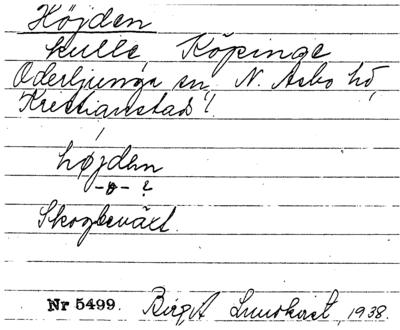 Höjden
kulle, Köpinge
Oderljunga sn, N. Asbo hd,
Kristianstads l.
højden
-ø- ?
Skogbeväxt.
Nr 5499. Birgit Lundkvist, 1938.